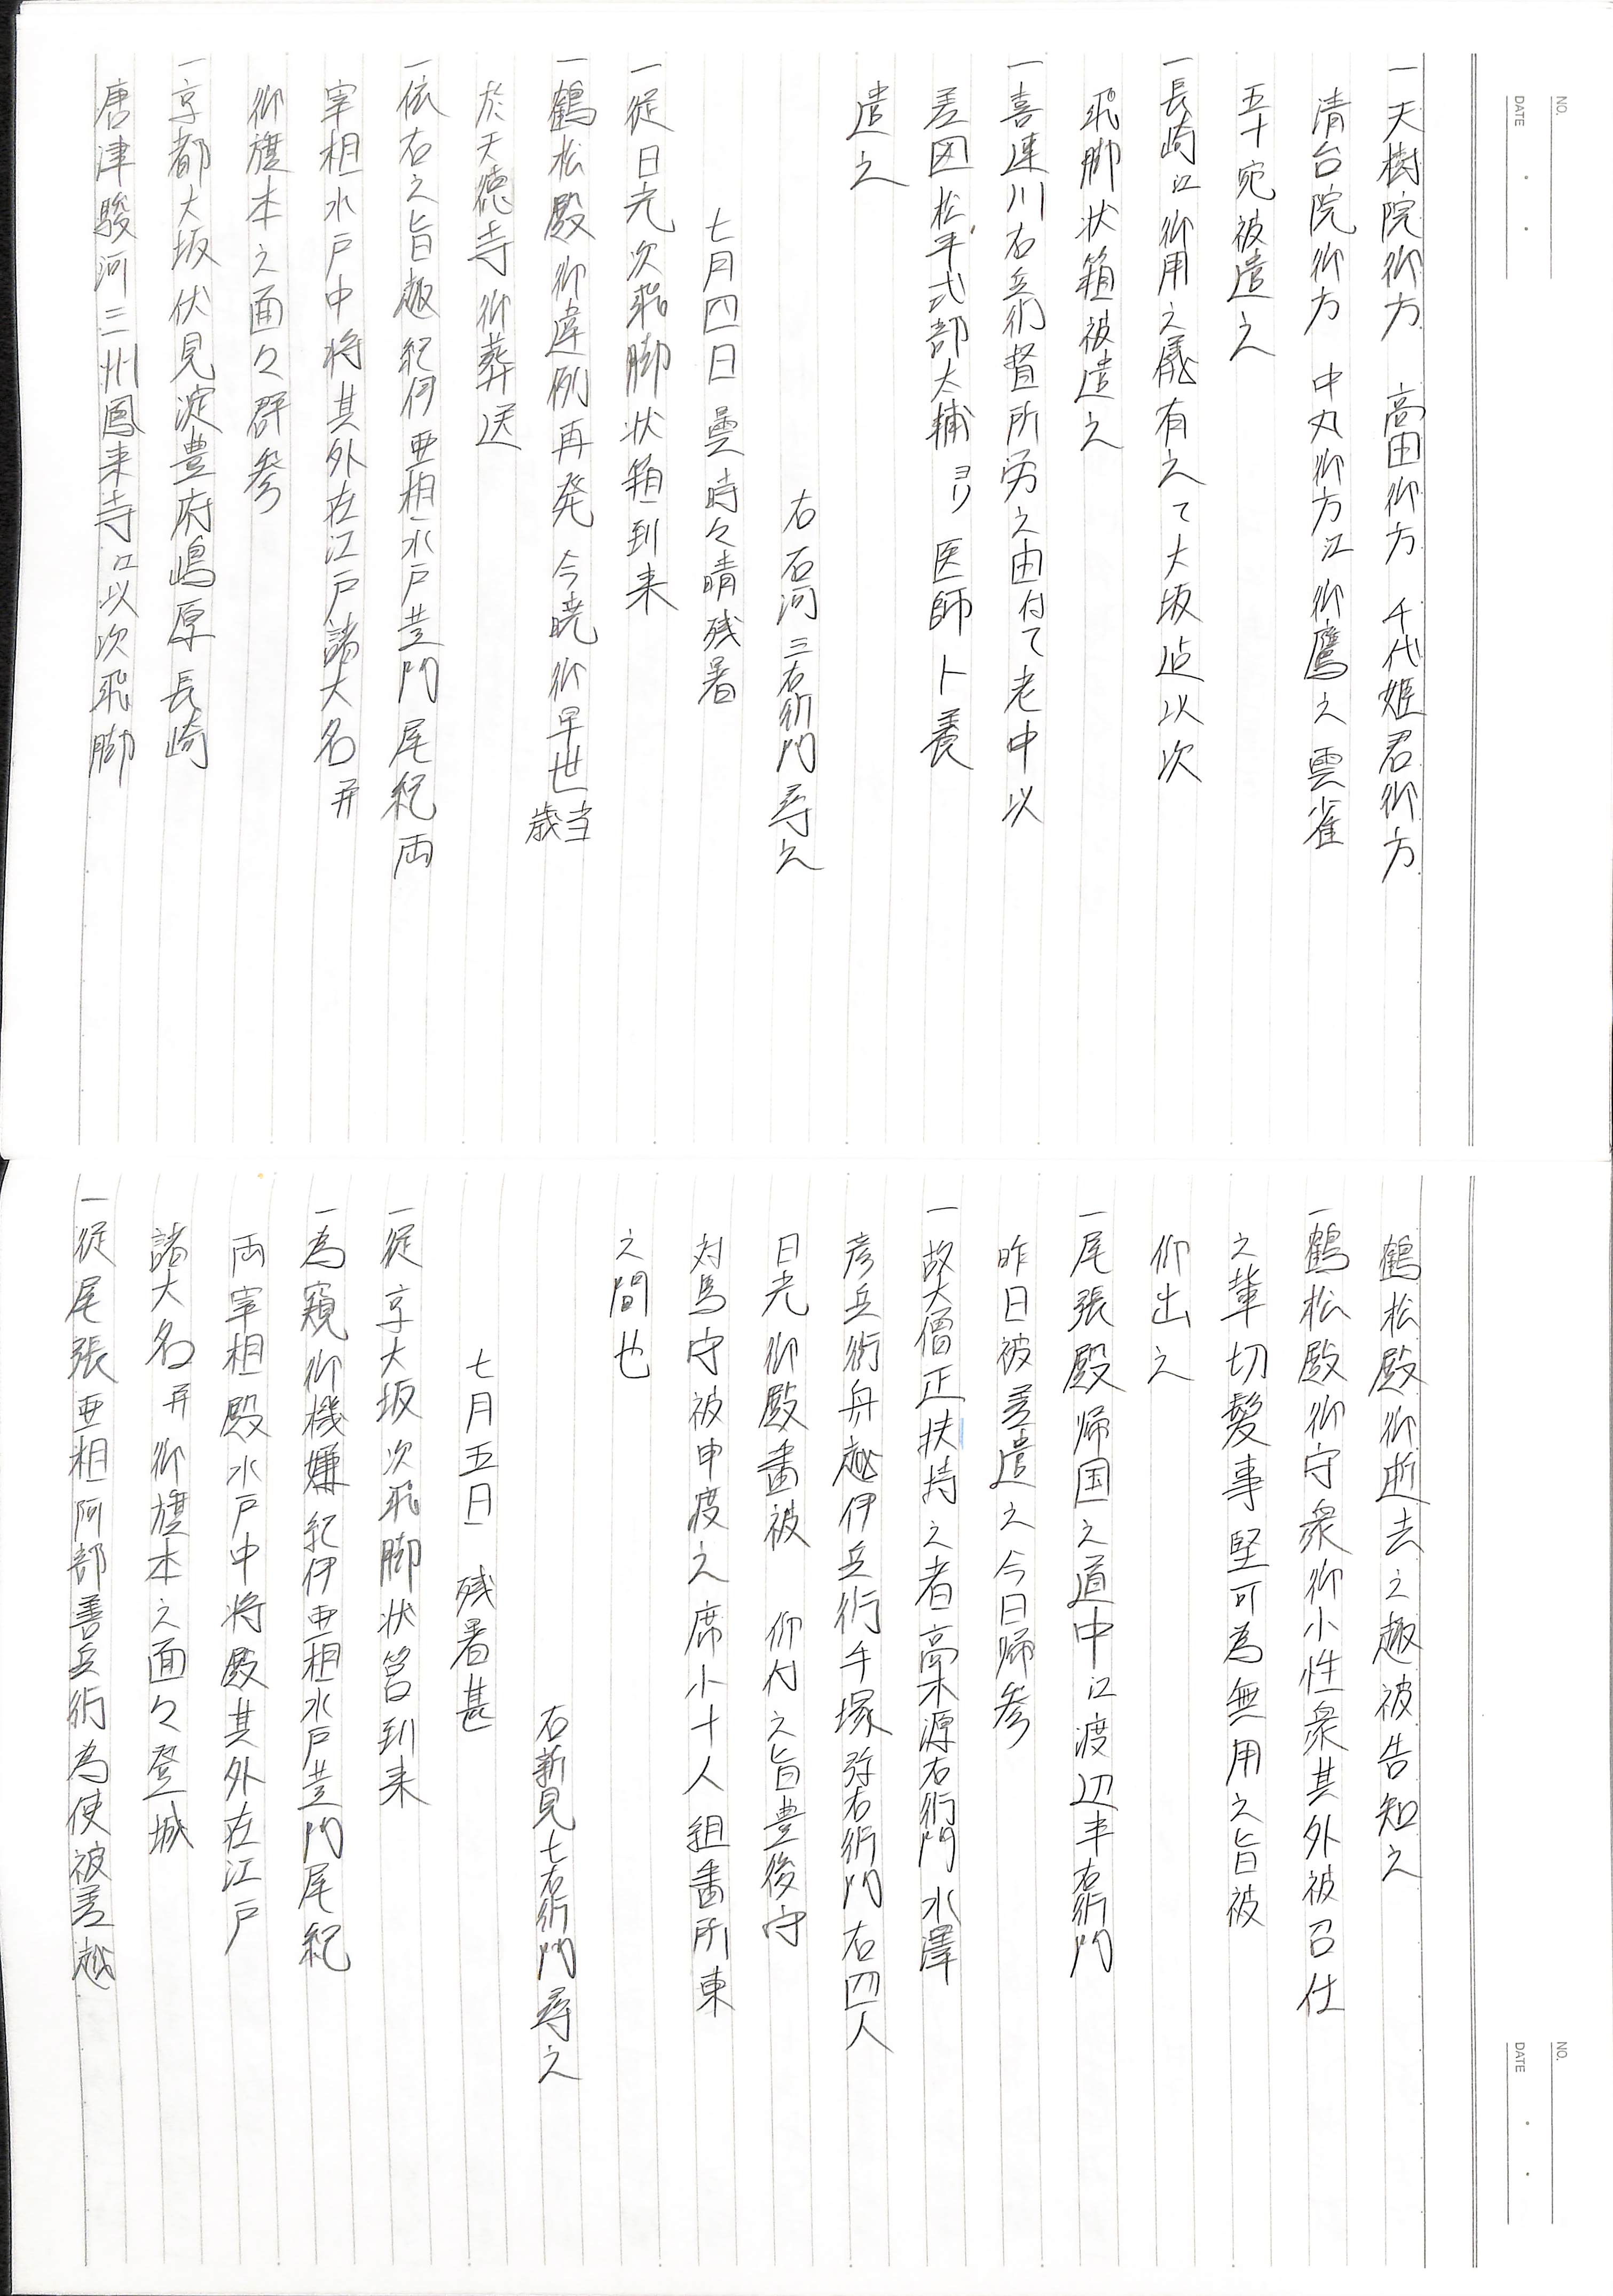 NO.
DATE
一天樹院御方　高田御方　千代姫君御方
清台院御方　中丸御方江御鷹之雲雀
五十宛被遣之
一長崎江御用之儀有之て大坂迄以次
飛脚状箱被遣之
一喜連川右兵衛督所労之由付て老中以
差図松平式部大輔ヨリ　医師卜養
遣之
右石河三右衛門尋之
七月四日　曇時々晴残暑
一従日光次飛脚状箱到来
一鶴松殿御違例再発　今暁御早世当歳
於天徳寺御葬送
一依右之旨趣紀伊亜相水戸黄門尾紀両
宰相水戸中将其外在江戸諸大名并
御旗本之面々群参
一京都大坂伏見淀豊府嶋原長崎
唐津駿河三州鳳来寺江以次飛脚
NO.
DATE
鶴松殿御逝去之趣被告知之
一鶴松殿御守衆御小性衆其外被召仕
之輩切髪事堅可為無用之旨被
仰出之
一尾張殿帰国之道中江渡辺半右衛門
昨日被差遣之今日帰参
一故大僧正扶持之者高木源右衛門　水澤
彦兵衛舟越伊兵衛手塚弥右衛門右四人
日光御殿番被　仰付之旨豊後守
対馬守被申渡之席小十人組番所東
之間也
右新見七右衛門尋之
七月五日　残暑甚
一従京大坂次飛脚状筥到来
一為窺御機嫌紀伊亜相水戸黄門尾紀
両宰相殿水戸中将殿其外在江戸
諸大名并御旗本之面々登城
一従尾張亜相阿部善兵衛為使被差越